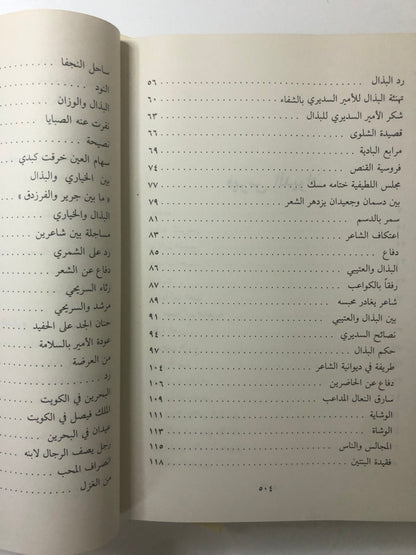 رد البذال . . . . . . . . . . . . . . . . . . . . ٥٦
تهنئة البذال للأمير السديري بالشفاء . . . . . . . . ٦٠
شكر الأمير السديري للبذال . . . . . . . . . . . . ٦٣
قصيدة الشلوى . . . . . . . . . . . . . . . . . . ٦٦
مرابع البادية . . . . . . . . . . . . . . . . . . . ٦٩
فروسية القنص . . . . . . . . . . . . . . . . . . ٧٤
مجلس اللطيفية ختامه مسك . . . . . . . . . . . . ٧٧
بين دسمان وجعيدان يزدهر الشعر . . . . . . . . . . ٧٩
سمر بالدسم . . . . . . . . . . . . . . . . . . . ٨١
اعتكاف الشاعر . . . . . . . . . . . . . . . . . . ٨٣
دفاع . . . . . . . . . . . . . . . . . . . . . . ٨٥
البذال والعتيبي . . . . . . . . . . . . . . . . . . ٨٦
رفقاً بالكواعب . . . . . . . . . . . . . . . . . . ٨٧
شاعر يغادر محبسه . . . . . . . . . . . . . . . . ٨٩
بين البذال والعتيبي . . . . . . . . . . . . . . . . ٩١
نصائح السديري . . . . . . . . . . . . . . . . . . ٩٤
حكم البذال . . . . . . . . . . . . . . . . . . . ٩٧
طريفة في ديوانية الشاعر . . . . . . . . . . . . . . ١٠٤
دفاع عن الحاضرين . . . . . . . . . . . . . . . . ١٠٦
سارق النعال المداعب . . . . . . . . . . . . . . . ١٠٩
الوشاية . . . . . . . . . . . . . . . . . . . . . ١١١
الوشاة . . . . . . . . . . . . . . . . . . . . . ١١٣
المجالس والناس . . . . . . . . . . . . . . . . . . ١١٥
فقيدة البنتين . . . . . . . . . . . . . . . . . . . ١١٨
٥٠٤
ساحل النجفا
النود . . . . . .
البذال والوزان . . . .
نفرت عنه الصبايا . .
نصيحة . . . . . .
سهام العين خرقت كبدي
بين الخياري والبذال
«ما بين جرير والفرزدق»
البذال والخياري . . .
مساجلة بين شاعرين .
رد على الشمري . . .
دفاع عن الشعر . . .
رثاء السريحي . . . .
مرشد والسريحي . . .
حنان الجد على الحفيد
عودة الأمير بالسلامة .
من العرضة . . . . .
رد . . . . . . . .
البحرين في الكويت .
الملك فيصل في الكويت
عيدان في البحرين . .
رجل يصف الرجال لابنه
انصراف المحب . . .
من الغزل . . . . .